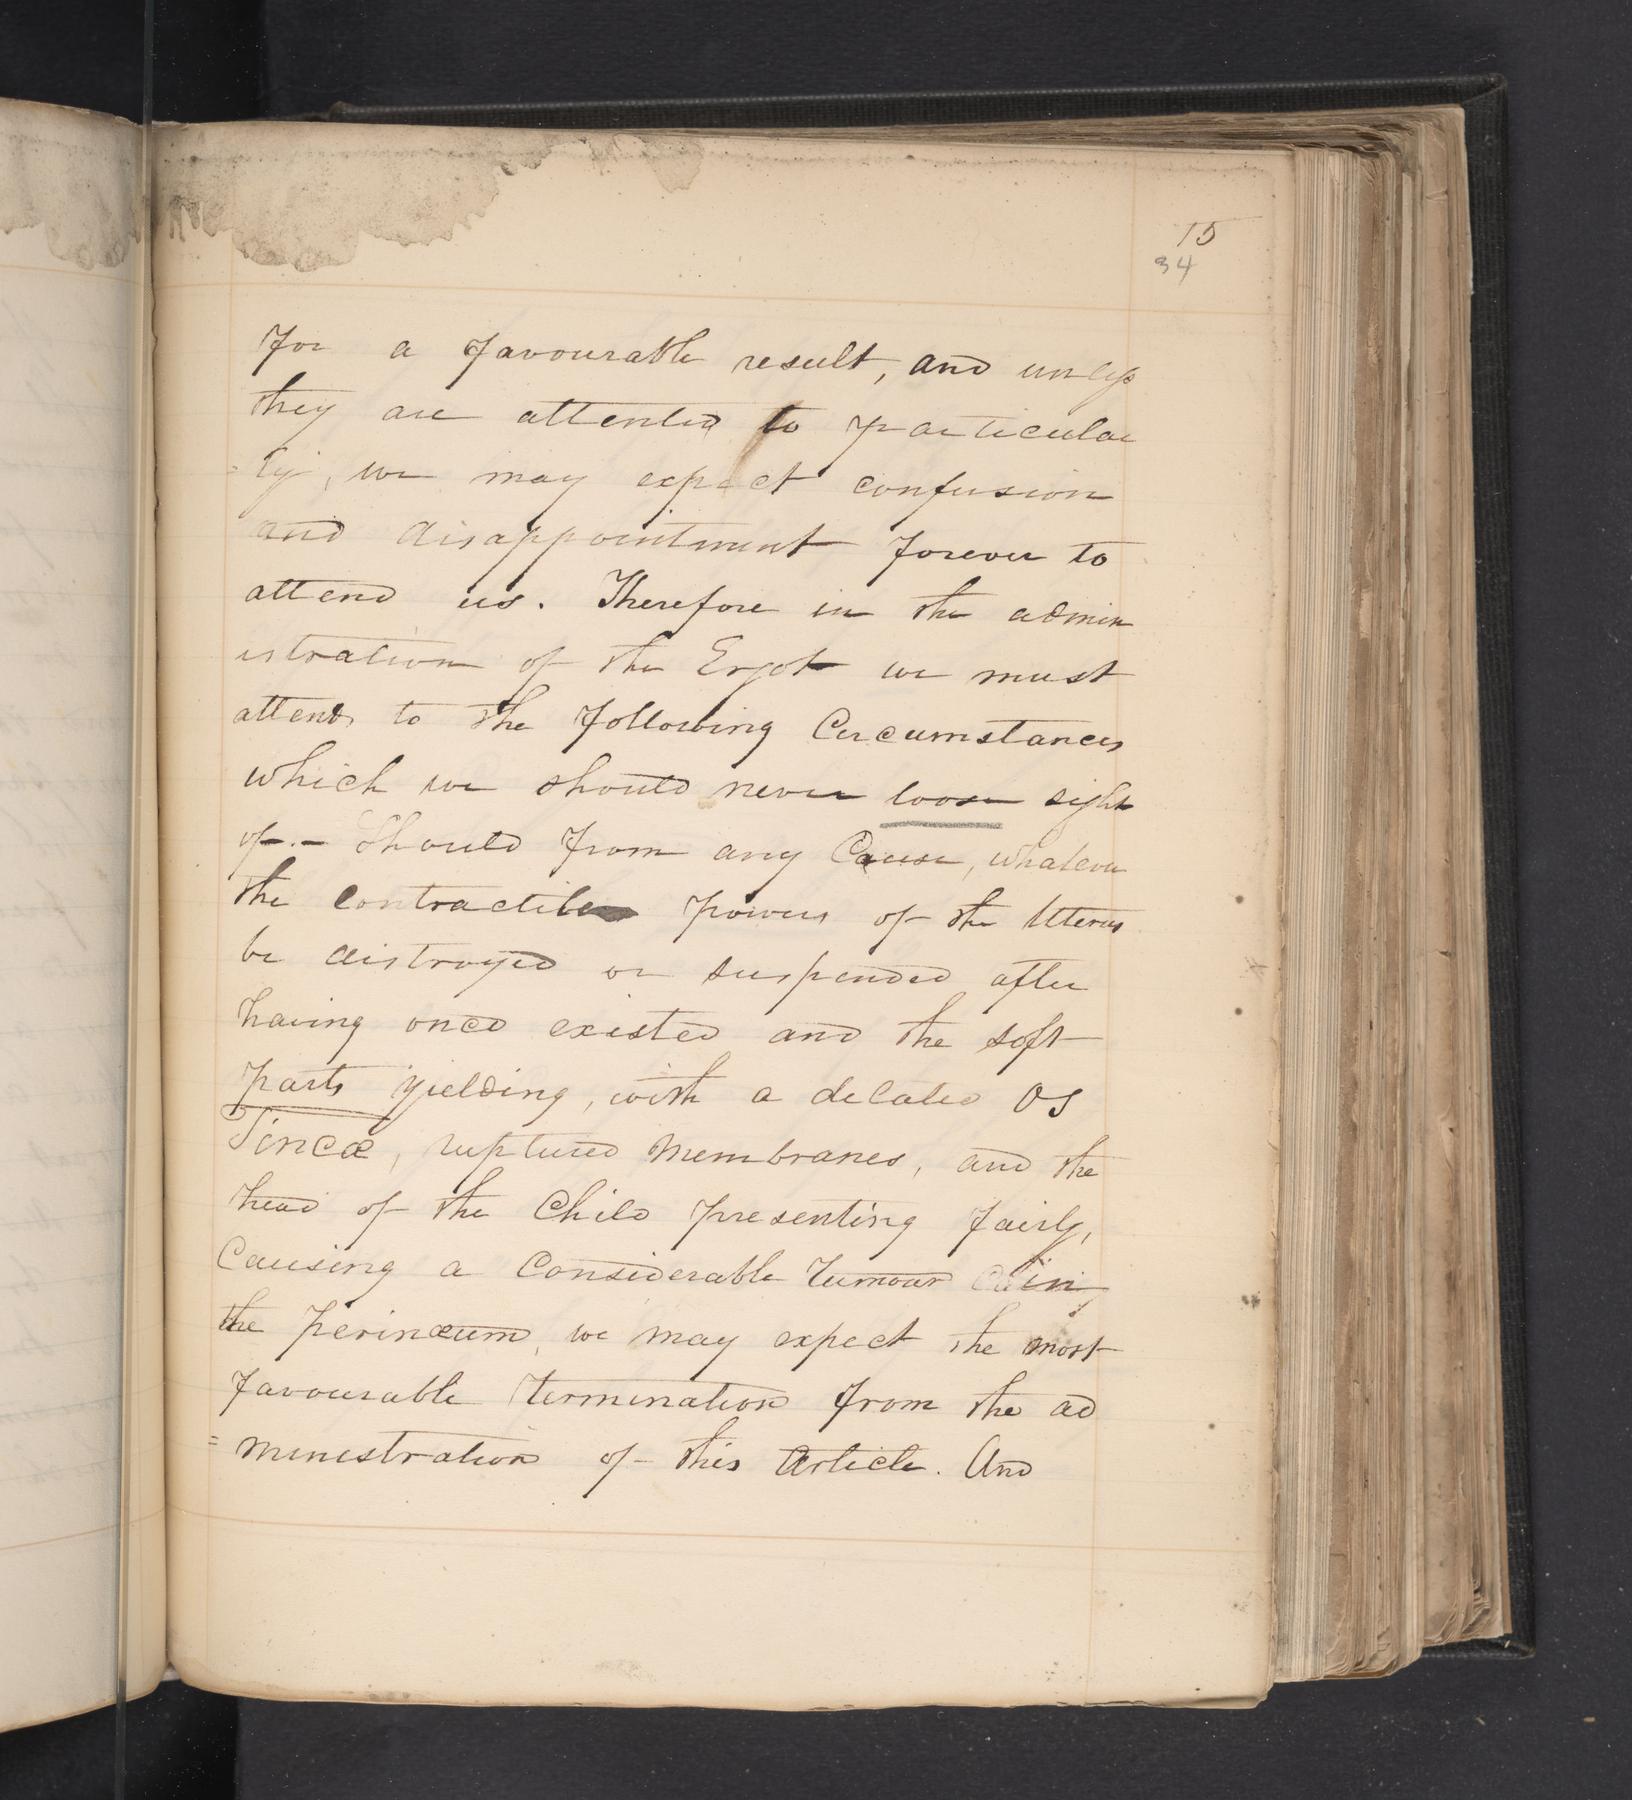 15
34
For a favourable result, and unless
they are attented to particular
=ly, we may expect confusion
and disappointment forever to
attend us. Therefore in the admin
istration of the Ergot we must
attend to the following Circumstances
which we should never loose sight
of. - Should from any Cause, whatever
the contractile powers of the Uterus
be distroyed or suspended after
having once existed and the soft
parts yielding, with a delated Os
Tincæ, ruptured Membranes, and the
head of the Child presenting fairly,
Causing a Considerable Tumour in
the perinæum, we may expect the most
favourable termination from the ad
=ministration of this Article. And